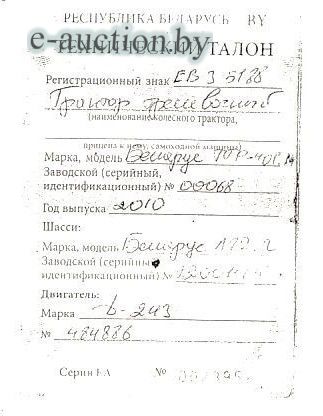 РЕСПУБЛИКА БЕЛАРУСЬ BY
e-auction.by
ТЕХНИЧЕСКИЙ ТАЛОН
Регистрационный знак ЕВ 3 5188
Трактор
(наименование колесного трактора,
прицепа к нему, самоходной машины)
Марка, модель Беларус
Заводской (серийный,
идентификационный) № 00068
Год выпуска 2010
Шасси:
Марка, модель Беларус
Заводской (серийный,
идентификационный) №
Двигатель:
Марка Д-243
№ 484886
Серия ЕА №